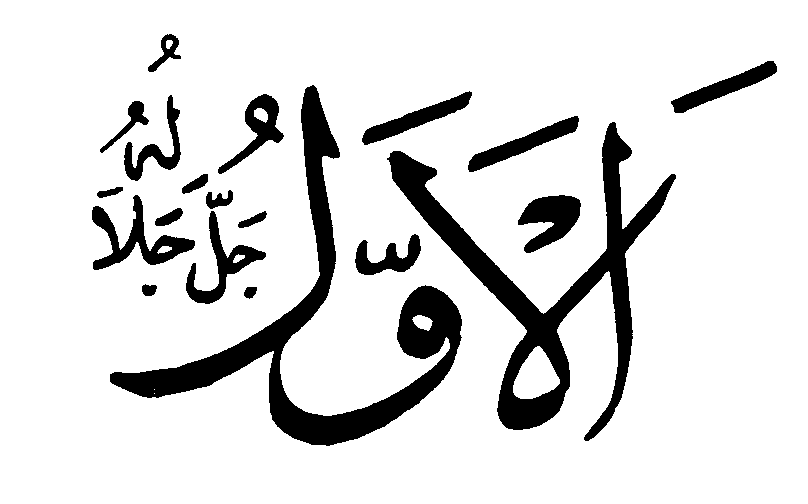 اَلْاَوَّلُ
جَلَّ جَلَالُهُ